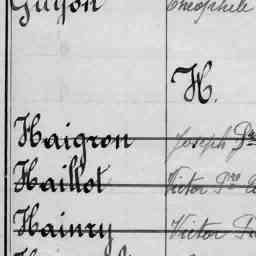 Guyon Théophile
H.
Haigron Joseph Pre
Haillot Victor Pre
Hainry Victor